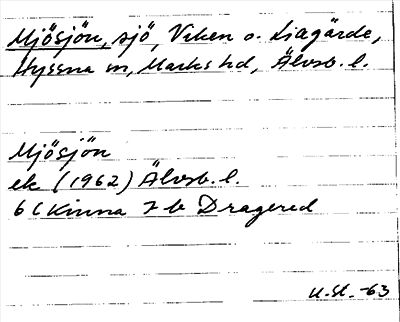 Mjösjön, sjö, Viken o. Liagärde,
Hyssna sn, Marks hd, Älvsb. l.
Mjösjön
ek (1962) Älvsb. l.
6 C Kinna 7 b Dragered
U. St. -63